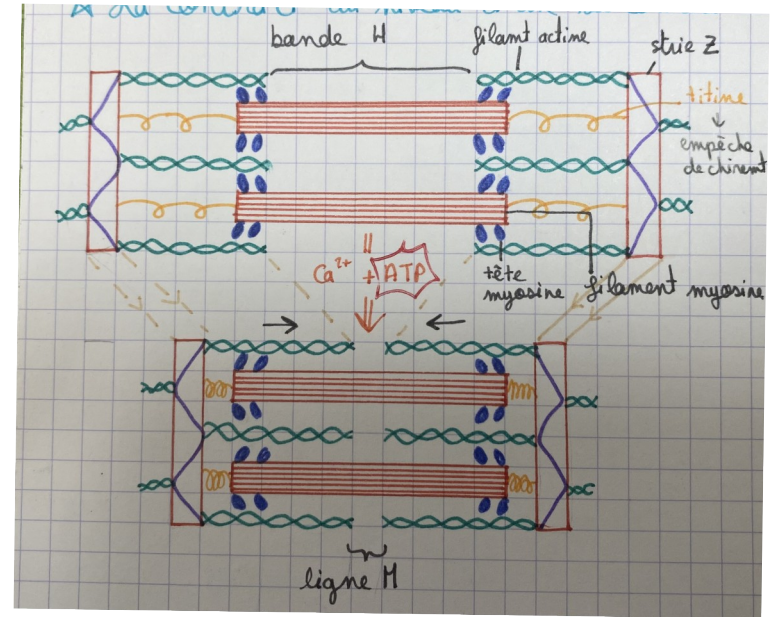 bande H
filamt actine
strie Z
titine
empêche
de chiremt
Ca²⁺ + ATP
tête
myosine
filament myosine
ligne M